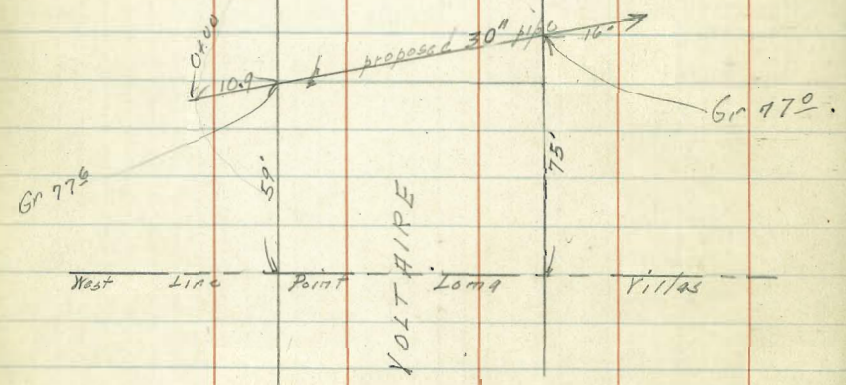 0+00
10.9
proposed 30" pipe
16'
Gr 77⁰.
Gr 77⁶
59'
75'
VOLTAIRE
West Line Point Loma Villas